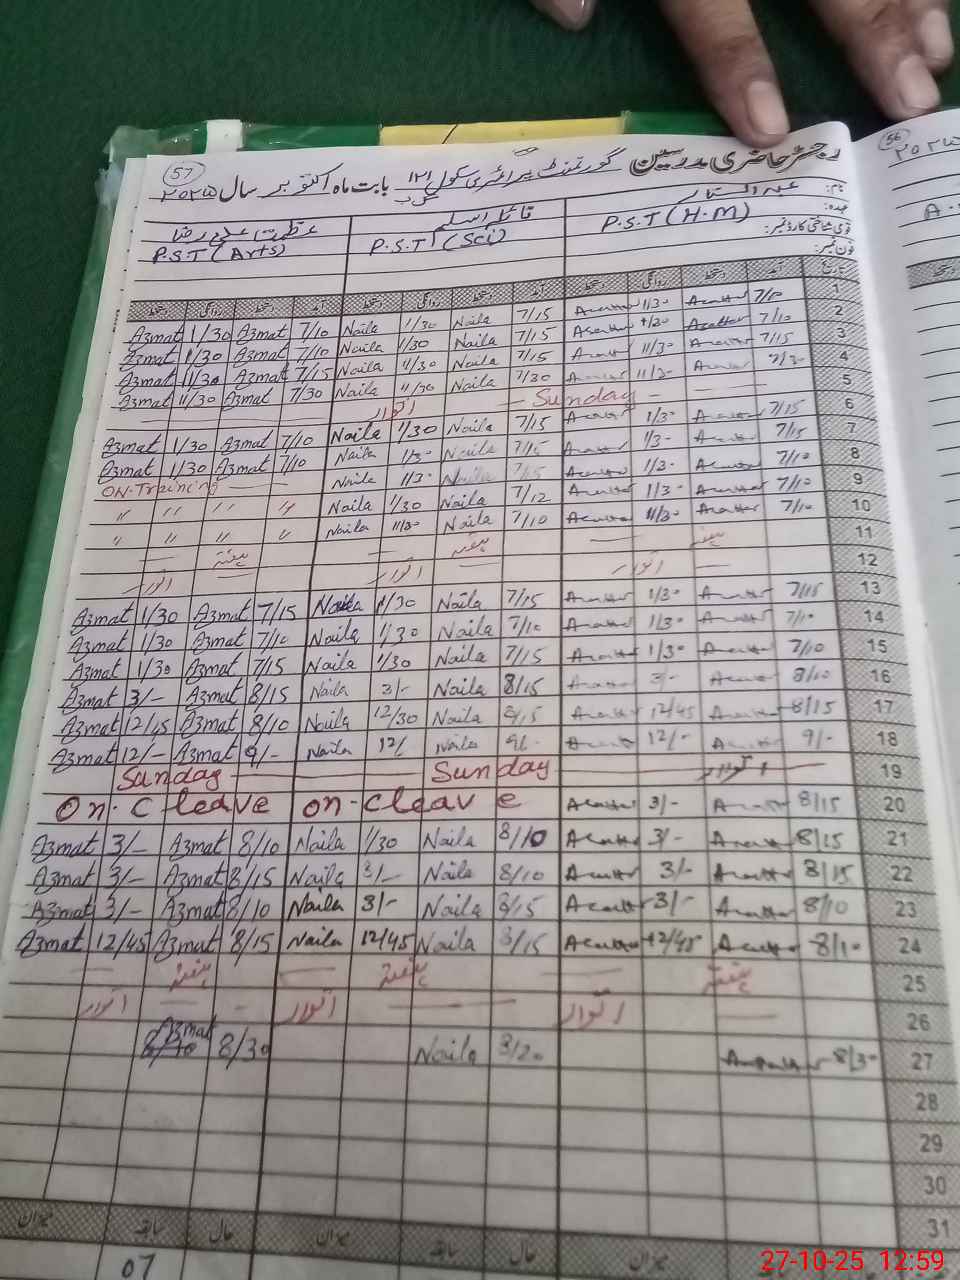 57
رجسٹر حاضری مدرسین گورنمنٹ پرائمری سکول ۱۲۱ بابت ماہ اکتوبر سال ۲۰۲۵
56
۲۰۲۵
نام: عبدالستار نائلہ اسلم عظمت علی رضا
عہدہ: P.S.T (H.M) P.S.T (Sci) P.S.T (Arts)
قومی شناختی کارڈ نمبر:
فون نمبر:
تاریخ آمد دستخط روانگی دستخط آمد دستخط روانگی دستخط آمد دستخط روانگی دستخط
Azmat 1/30 Azmat 7/10 Naila 1/30 Naila 7/15 Asattar 1/30 Asattar 7/10 1
Azmat 1/30 Azmat 7/10 Naila 1/30 Naila 7/15 Asattar Asattar 7/10 2
Azmat 11/30 Azmat 7/15 Naila 11/30 Naila 7/15 Asattar 11/30 Asattar 7/15 3
Azmat 11/30 Azmat 7/30 Naila 11/30 Naila 7/30 Asattar 11/30 Asattar 7/30 4
اتوار Sunday 5
Azmat 1/30 Azmat 7/10 Naila 1/30 Naila 7/15 Asattar 1/30 Asattar 7/15 6
Azmat 1/30 Azmat 7/10 Naila 1/30 Naila 7/15 Asattar 1/30 Asattar 7/15 7
ON-Training Naila 1/30 Naila 7/15 Asattar 1/30 Asattar 7/10 8
〃 〃 〃 〃 Naila 1/30 Naila 7/12 Asattar 1/30 Asattar 7/10 9
〃 〃 〃 〃 Naila 11/30 Naila 7/10 Asattar 11/30 Asattar 7/10 10
ہفتہ ہفتہ ہفتہ 11
اتوار اتوار اتوار 12
Azmat 1/30 Azmat 7/15 Naila 1/30 Naila 7/15 Asattar 1/30 Asattar 7/15 13
Azmat 1/30 Azmat 7/10 Naila 1/30 Naila 7/10 Asattar 1/30 Asattar 7/10 14
Azmat 1/30 Azmat 7/15 Naila 1/30 Naila 7/15 Asattar 1/30 Asattar 7/10 15
Azmat 3/- Azmat 8/15 Naila 3/- Naila 8/15 Asattar 3/- Asattar 8/10 16
Azmat 12/45 Azmat 8/10 Naila 12/30 Naila 8/15 Asattar 12/45 Asattar 8/15 17
Azmat 12/- Azmat 9/- Naila 12/ Naila 9/- Asattar 12/- Asattar 9/- 18
Sunday Sunday اتوار 19
On-C leave on-Cleave Asattar 3/- Asattar 8/15 20
Azmat 3/- Azmat 8/10 Naila 1/30 Naila 8/10 Asattar 3/- Asattar 8/15 21
Azmat 3/- Azmat 8/15 Naila 3/- Naila 8/10 Asattar 3/- Asattar 8/15 22
Azmat 3/- Azmat 8/10 Naila 3/- Naila 8/15 Asattar 3/- Asattar 8/10 23
Azmat 12/45 Azmat 8/15 Naila 12/45 Naila 8/15 Asattar 12/45 Asattar 8/10 24
ہفتہ ہفتہ ہفتہ 25
اتوار اتوار اتوار 26
Azmat 8/30 Naila 8/20 Asattar 8/30 27
28
29
30
31
میزان سابقہ حال میزان سابقہ حال میزان
07
27-10-25 12:59